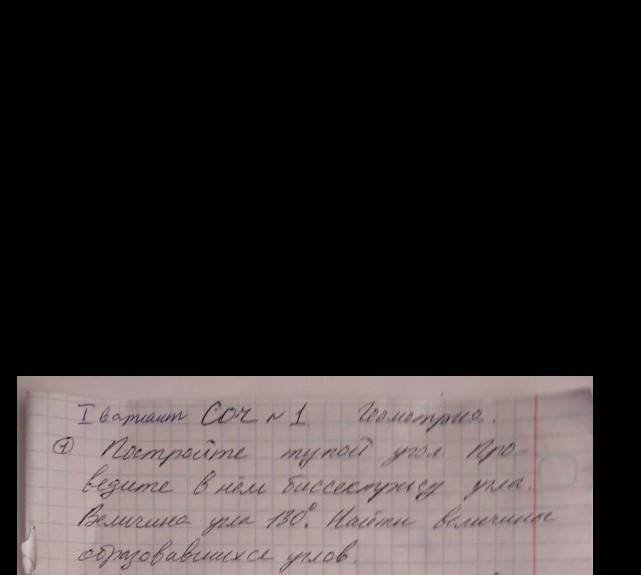 I вариант СОЧ №1 Геометрия.
① Постройте тупой угол. Про-
ведите в нём биссектрису угла.
Величина угла 130°. Найти величины
образовавшихся углов.